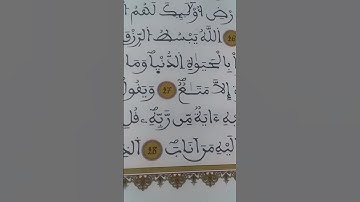 رْضِ أُوْلَٰٓئِكَ لَهُمُ
26 اَ۬للَّهُ يَبْسُطُ اُ۬لرِّزْقَ
بِالْحَيَوٰةِ اِ۬لدُّنْيَا وَمَا
ةِ إِلَّا مَتَٰعٌ 27 وَيَقُولُ
هِ ءَايَةٌ مِّن رَّبِّهِۦ قُلِ
لَيْهِ مَنَ اَنَابَ 28